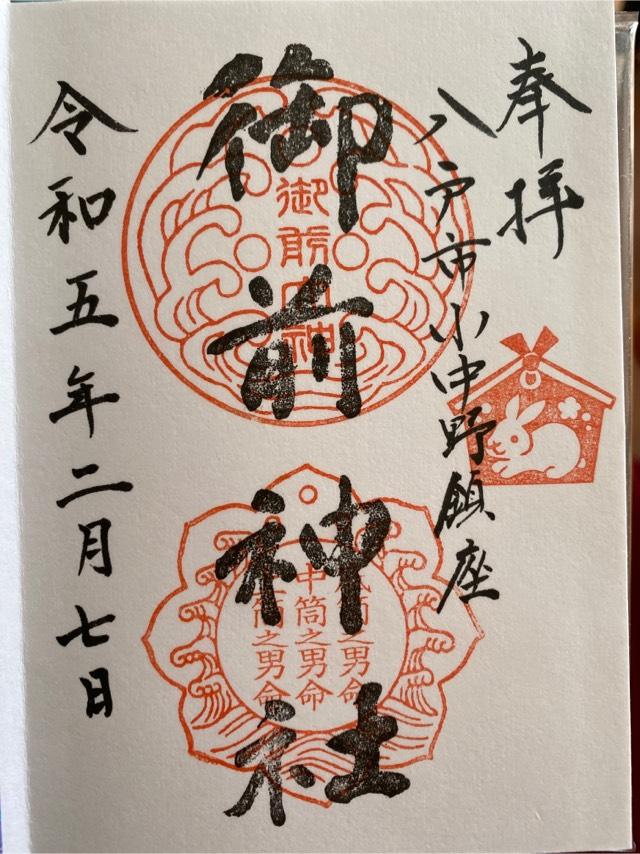 奉拝
八戸市小中野鎮座
御前神社
御前
神
中筒之男命
筒之男命
令和五年二月七日